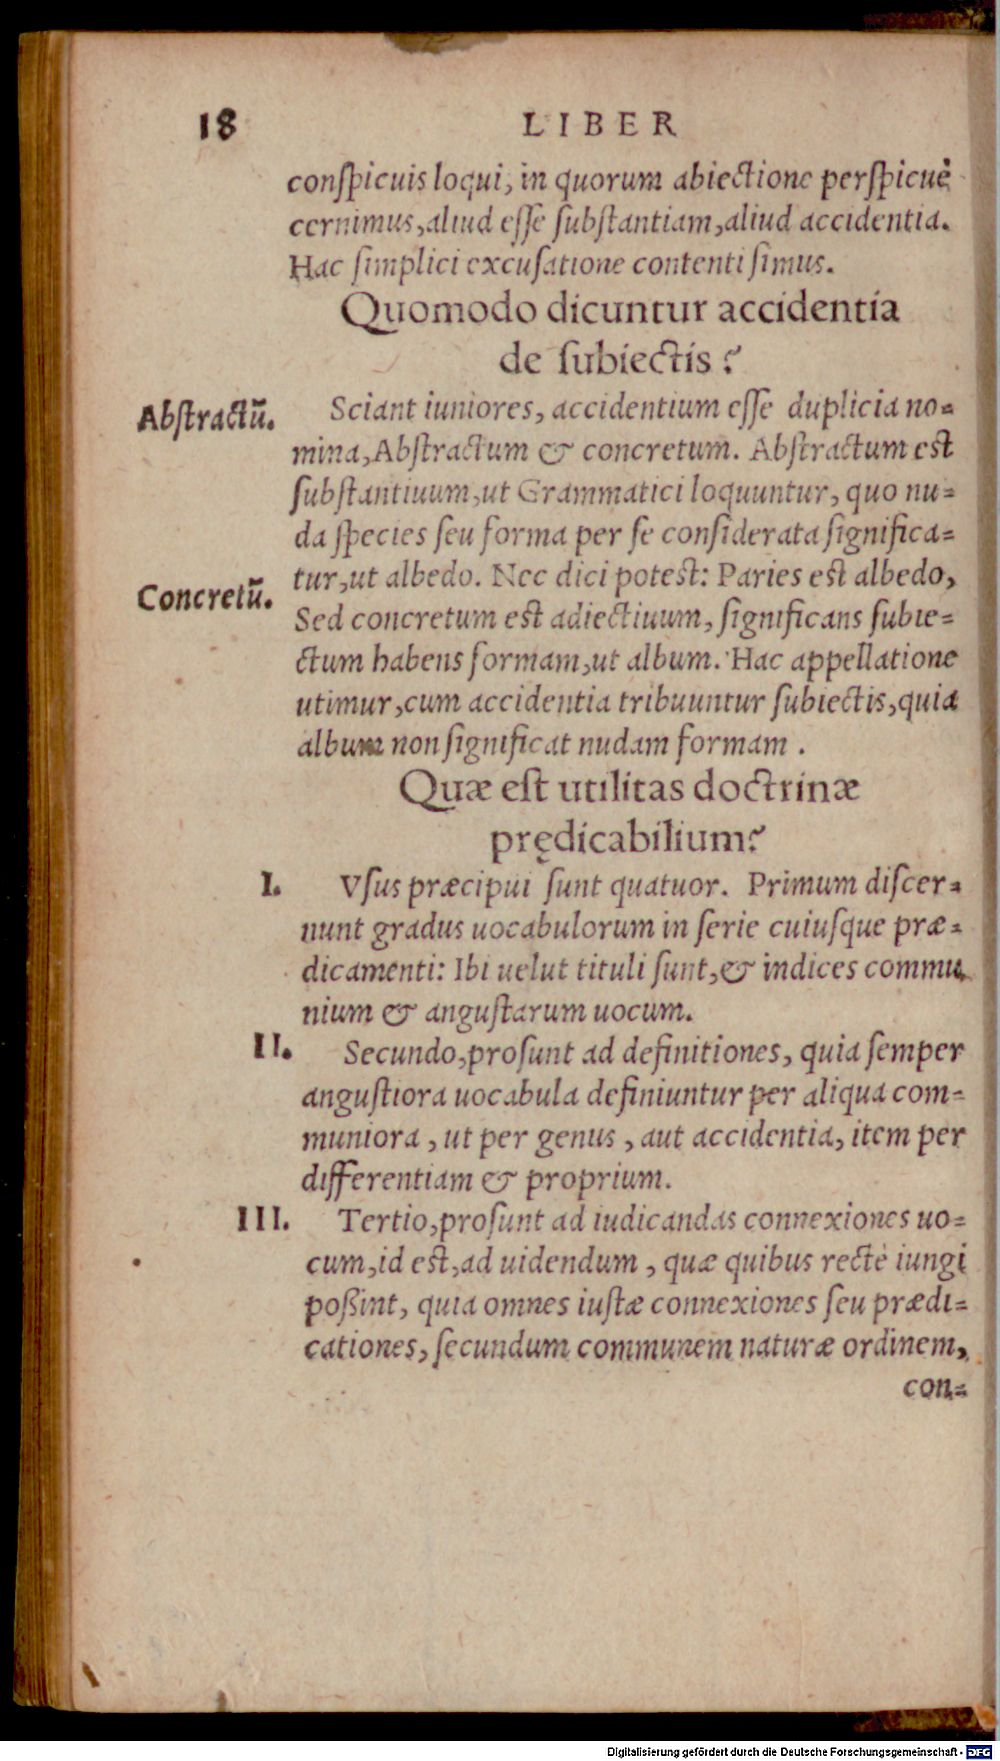 18 LIBER
conſpicuis loqui, in quorum abiectione perſpicuè
cernimus, aliud eſſe ſubſtantiam, aliud accidentia.
Hac ſimplici excuſatione contenti ſimus.
Quomodo dicuntur accidentia
de ſubiectis?
Abſtractũ.
Sciant iuniores, accidentium eſſe duplicia no-
mina, Abſtractum & concretum. Abſtractum est
ſubſtantiuum, ut Grammatici loquuntur, quo nu-
da ſpecies ſeu forma per ſe conſiderata ſignifica-
tur, ut albedo. Nec dici potest: Paries est albedo,
Concretũ.
Sed concretum est adiectiuum, ſignificans ſubie-
ctum habens formam, ut album. Hac appellatione
utimur, cum accidentia tribuuntur ſubiectis, quia
album non ſignificat nudam formam.
Quæ eſt utilitas doctrinæ
prędicabilium?
I. Vſus præcipui ſunt quatuor. Primum diſcer-
nunt gradus uocabulorum in ſerie cuiuſque præ-
dicamenti: Ibi uelut tituli ſunt, & indices commu
nium & anguſtarum uocum.
II. Secundo, proſunt ad definitiones, quia ſemper
anguſtiora uocabula definiuntur per aliqua com-
muniora, ut per genus, aut accidentia, item per
differentiam & proprium.
III. Tertio, proſunt ad iudicandas connexiones uo-
cum, id est, ad uidendum, quæ quibus rectè iungi
poßint, quia omnes iuſtæ connexiones ſeu prædi-
cationes, ſecundum communem naturæ ordinem,
con-
Digitalisierung gefördert durch die Deutsche Forschungsgemeinschaft - DFG